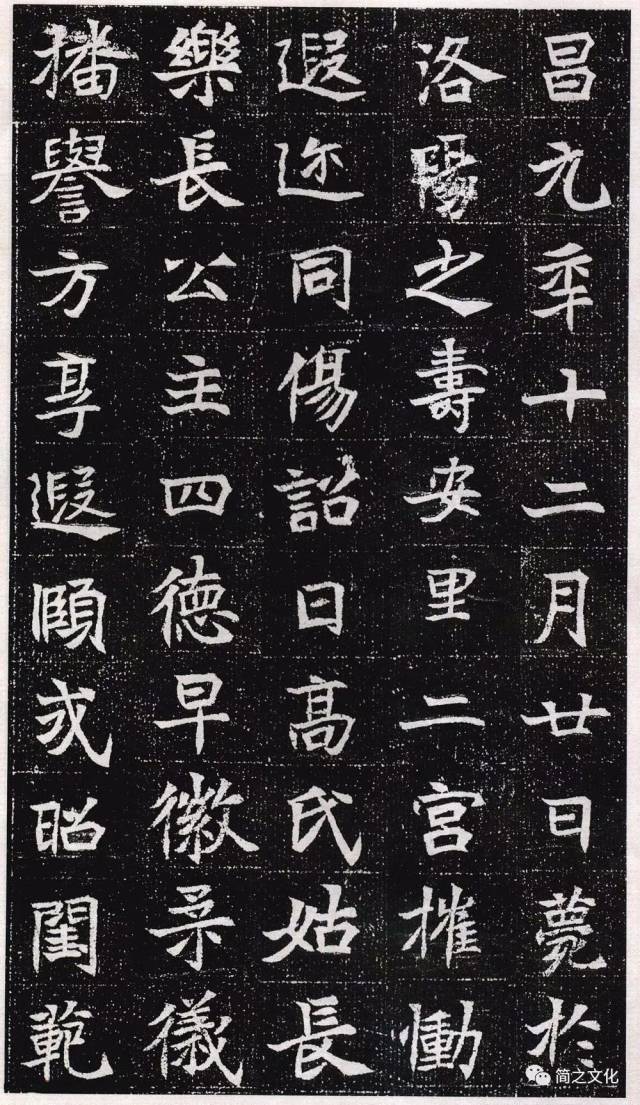 昌元年十二月廿日薨於
洛陽之壽安里二宮摧慟
遐迩同傷詔曰高氏姑長
樂長公主四德早徽柔儀
播譽方享遐頤式昭閨範
简之文化